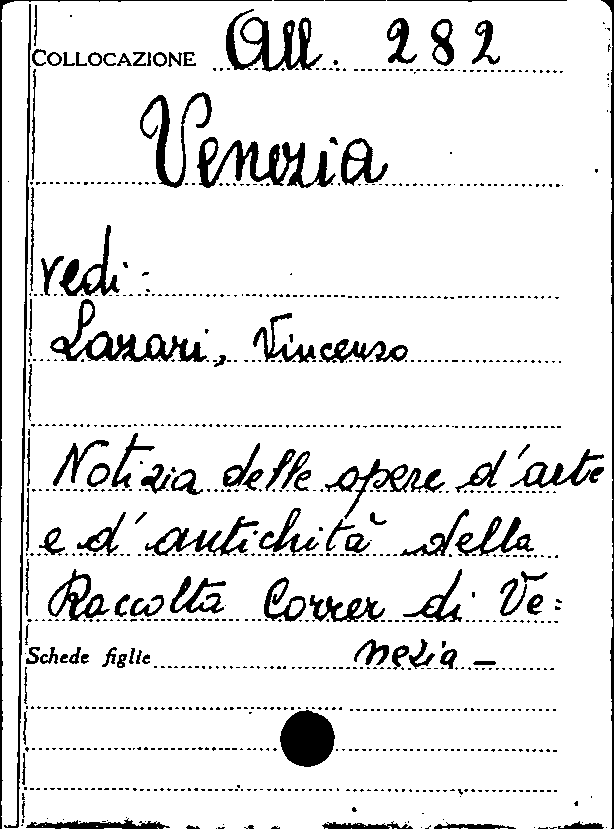 COLLOCAZIONE All. 282
Venezia
vedi:
Lazari, Vincenzo
Notizia delle opere d'arte
e d'antichità della
Raccolta Correr di Ve=
Schede figlie nezia -